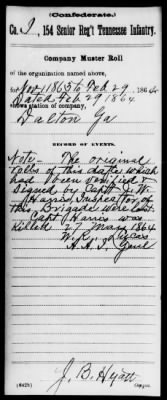 (Confederate.)
Co. I, 154 Senior Reg't Tennessee Infantry.
Company Muster Roll
of the organization named above,
for Nov 1 1863 to Feb 29, 1864.
Dated Feb 29 1864
Station of company,
Dalton Ga
RECORD OF EVENTS.
Note. The original
rolls of this date which
had been verified &
signed by Capt J. W.
Harris Inspector of
this Brigade were lost.
Capt Harris was
killed 27 May 1864
A. A. I. Genl
J. B. Hyatt
(642b)
Copyist.